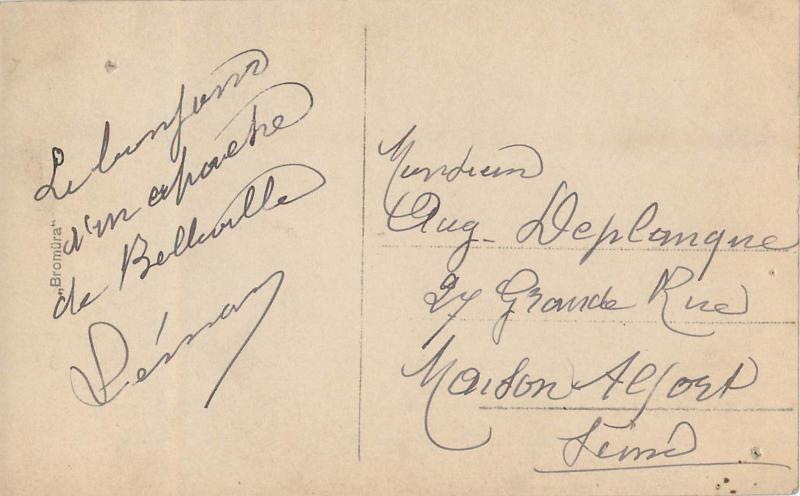 Le bonjour
d'un apache
de Belleville
"Bromüra"
Monsieur
Aug. Deplanque
27 Grande Rue
Maison Alfort
Seine